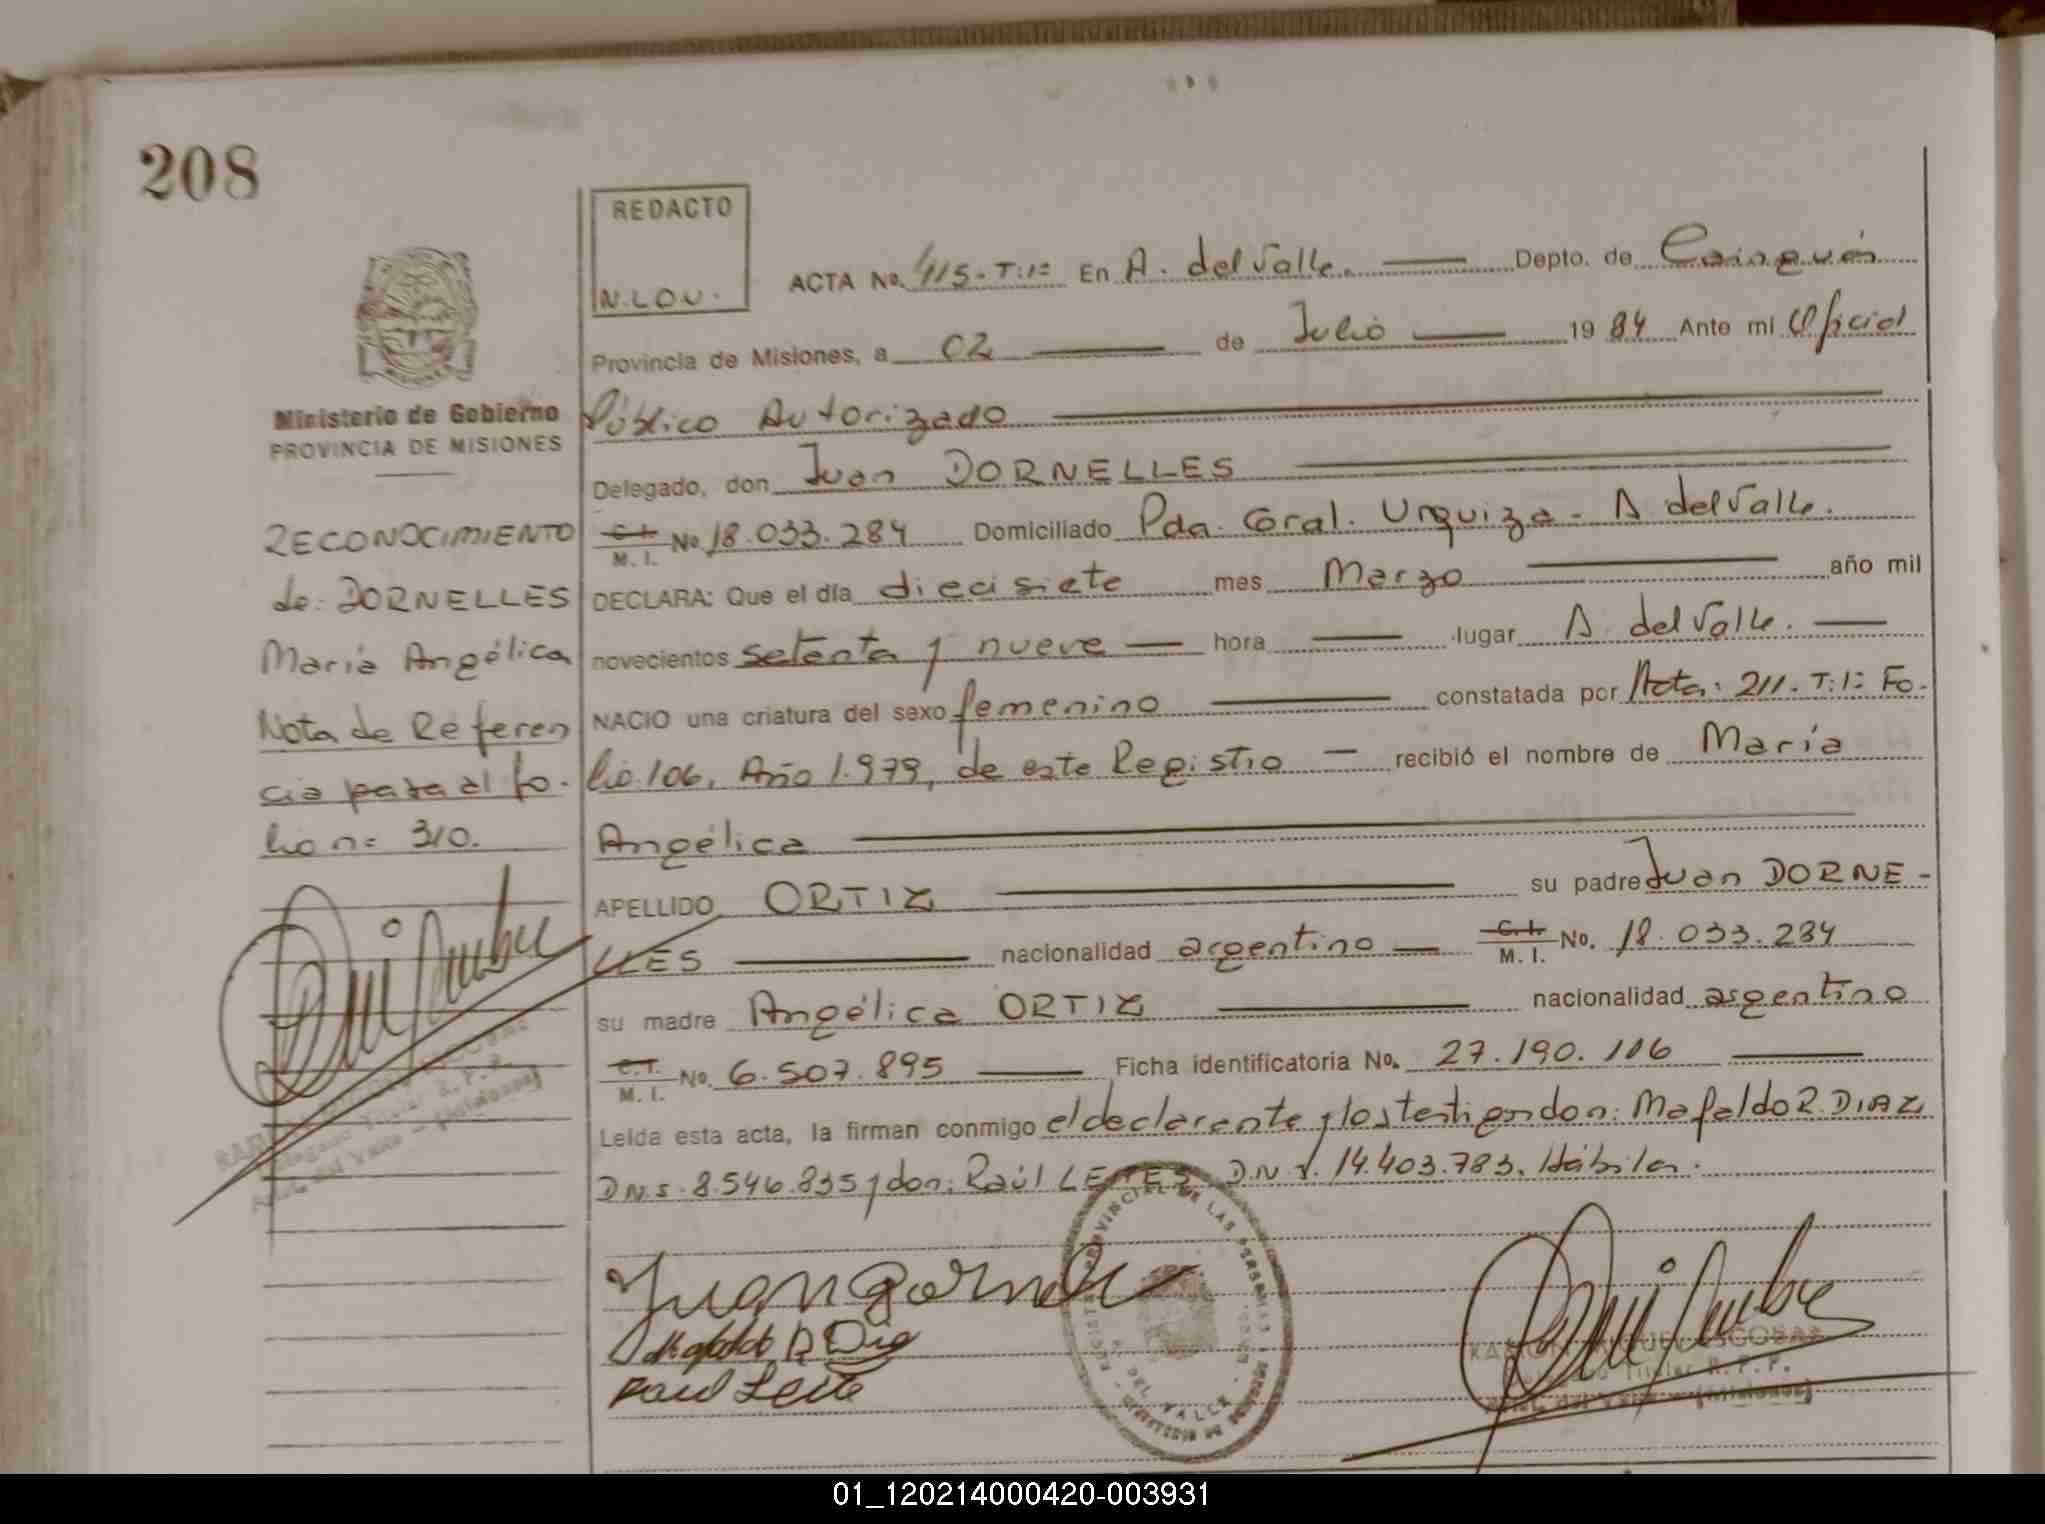 208
REDACTO
N.LOV.
ACTA No. 415-T:1= En A. del Valle. Depto. de Cainguás
Provincia de Misiones, a 02 de Julio 1984 Ante mi Oficial
Público Autorizado
Delegado, don Juan DORNELLES
C.I. M.I. No 18.033.284 Domiciliado Pda. Gral. Urquiza - A del Valle.
DECLARA: Que el día diecisiete mes Marzo año mil
novecientos setenta y nueve hora lugar A. del Valle.
NACIO una criatura del sexo femenino constatada por Acta: 211. T:1= Fo-
lio.106, Año 1.979, de este Registro recibió el nombre de María
Angélica
APELLIDO ORTIZ su padre Juan DORNE-
LLES nacionalidad argentino C.I. M.I. No. 18.033.284
su madre Angélica ORTIZ nacionalidad argentino
C.I. M.I. No. 6.507.895 Ficha identificatoria No. 27.190.106
Leida esta acta, la firman conmigo el declarente y los testigos don: Mafaldo R. DIAZ
8.546.835 y don: Raúl LEITES 14.403.783. Hábiles.
Ministerio de Gobierno
PROVINCIA DE MISIONES
RECONOCIMIENTO
de: DORNELLES
María Angélica
Nota de Referen
cia para al fo-
lio n= 310.
Juan Dornele
Mafaldo R Diaz
Raul Leite
PROVINCIAL DE LAS PERSONAS
DEL VALLE
RAMON MIGUEL ESCOBAR
Titular R.P.P.
(Misiones)
01_120214000420-003931